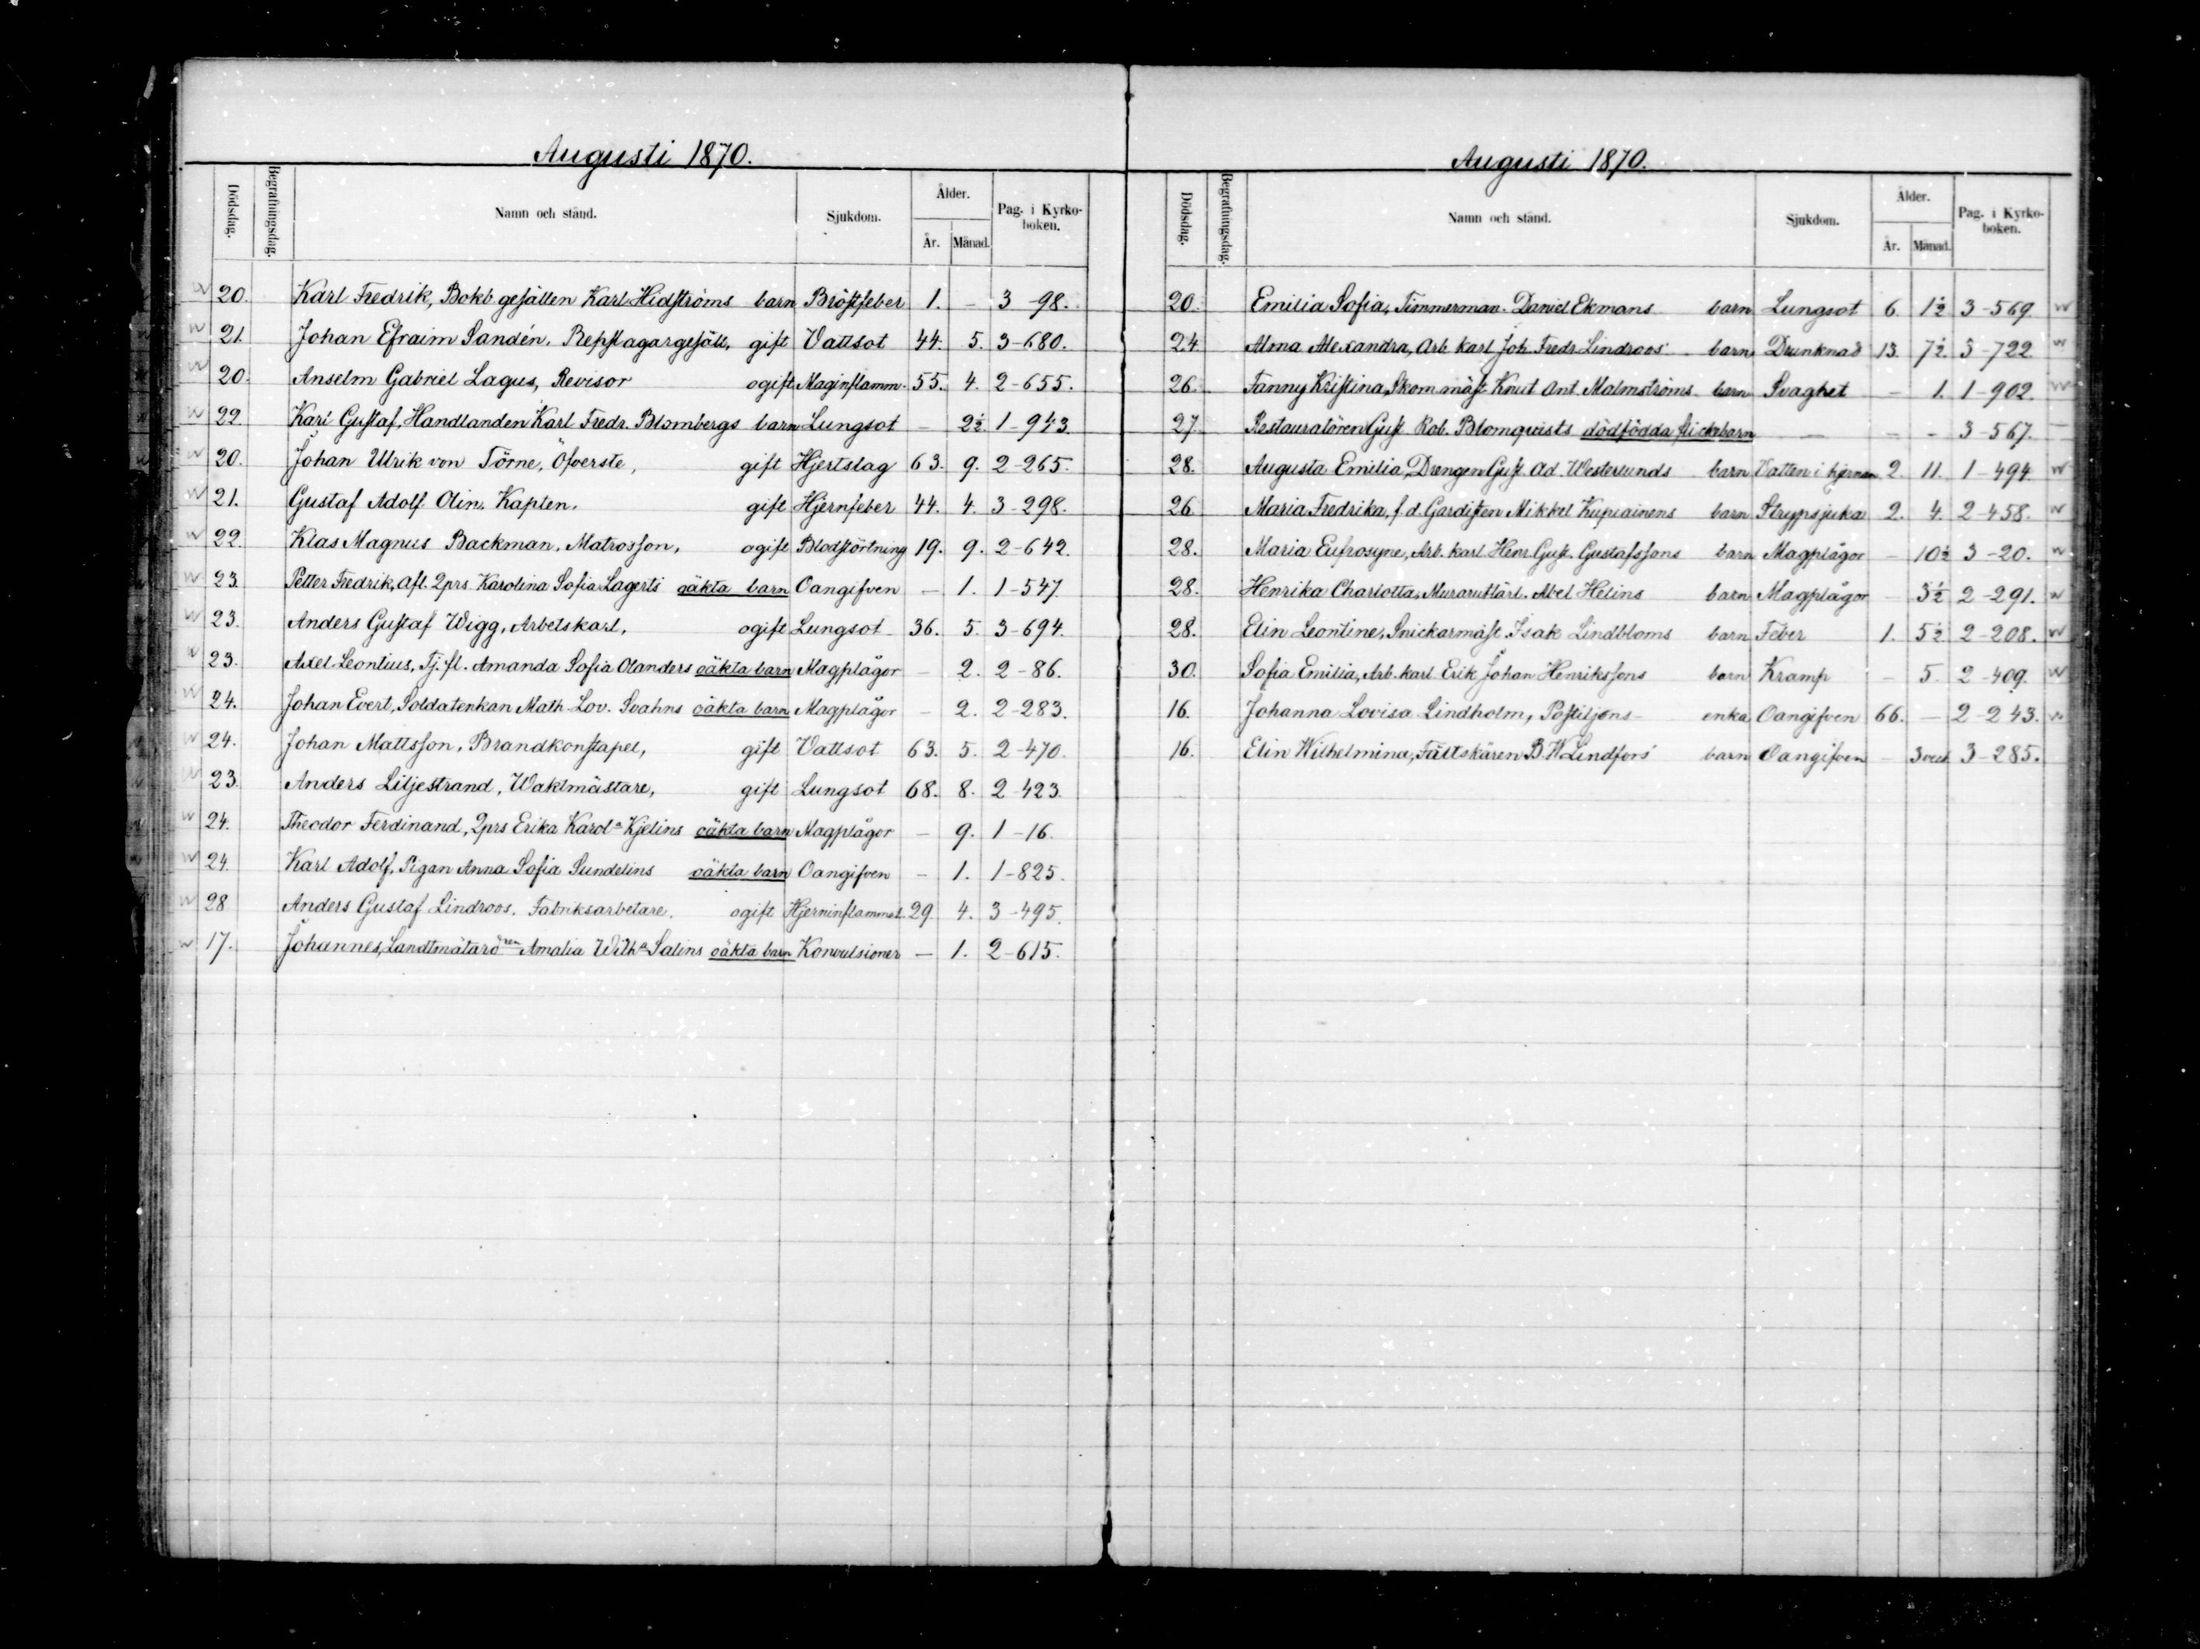 Augusti 1870.
Dödsdag. Begrafningsdag. Namn och stånd. Sjukdom. Ålder. År. Månad. Pag. i Kyrkoboken.
20. Karl Fredrik, Bokb. gesällen Karl Hidströms barn Bröstfeber 1. — 3-98.
21. Johan Efraim Sandén, Repslagargesäll, gift Vattsot 44. 5. 3-680.
20. Anselm Gabriel Lagus, Revisor ogift Maginflamm. 55. 4. 2-655.
22. Karl Gustaf, Handlanden Karl Fredr. Blombergs barn Lungsot — 2½ 1-943.
20. Johan Ulrik von Törne, Öfverste, gift Hjertslag 63. 9. 2-265.
21. Gustaf Adolf Olin, Kapten. gift Hjernfeber 44. 4. 3-298.
22. Klas Magnus Backman, Matrosson, ogift Blodstörtning 19. 9. 2-642.
23. Petter Fredrik, Afl. 2prs Karolina Sofia Lagerts oäkta barn Oangifven — 1. 1-547
23. Anders Gustaf Wigg, Arbetskarl, ogift Lungsot 36. 5. 3-694.
23. Axel Leontius, Tj. fl. Amanda Sofia Olanders oäkta barn Magplågor — 2. 2-86.
24. Johan Evert, Soldatenkan Math. Lov. Svahns oäkta barn Magplågor — 2. 2-283.
24. Johan Mattsson, Brandkonstapel, gift Vattsot 63. 5. 2-470.
23. Anders Liljestrand, Waktmästare, gift Lungsot 68. 8. 2-423.
24. Theodor Ferdinand, 2prs Erika Karola Kjelins oäkta barn Magplågor — 9. 1-16.
24. Karl Adolf, Pigan Anna Sofia Sundelins oäkta barn Oangifven — 1. 1-825.
28 Anders Gustaf Lindroos, Fabriksarbetare. ogift Hjerninflammat. 29. 4. 3-495.
17. Johannes, Amalia Wilha Salins oäkta barn Konvulsioner — 1. 2-615.
Augusti 1870.
Dödsdag. Begrafningsdag. Namn och stånd. Sjukdom. Ålder. År. Månad. Pag. i Kyrkoboken.
20. Emilia Sofia, Timmerman. Daniel Ekmans barn Lungsot 6. 1½ 3-569
24. Alma Alexandra, Arb. karl Joh. Fredr. Lindroos' barn Drunknad 13. 7½ 3-722
26. Fanny Kristina, Skom. mäst. Knut Ant. Malmströms barn Svaghet — 1. 1-902.
27. Restauratören Gust. Rob. Blomqvists dödfödda flickebarn — — — 3-567.
28. Augusta Emilia, Drengen Gust. Ad. Westerlunds barn Vatten i hjernan 2. 11. 1-494.
26. Maria Fredrika, f. d. Gardisten Mikkel Kupiainens barn Strypsjuka 2. 4. 2-458.
28. Maria Eufrosyne, Arb. karl Henr. Gust. Gustafssons barn Magplågor — 10½ 3-20.
28. Henrika Charlotta, Abel Helins barn Magplågor — 3½ 2-291.
28. Elin Leontine, Snickarmäst. Isak Lindbloms barn Feber 1. 5½ 2-208.
30. Sofia Emilia, Arb. karl Erik Johan Henrikssons barn Kramp — 5. 2-409.
16. Johanna Lovisa Lindholm, Postiljons- enka Oangifven 66. — 2-243.
16. Elin Wilhelmina, Fältskären B. W. Lindfors' barn Oangifven — 3 veck 3-285.